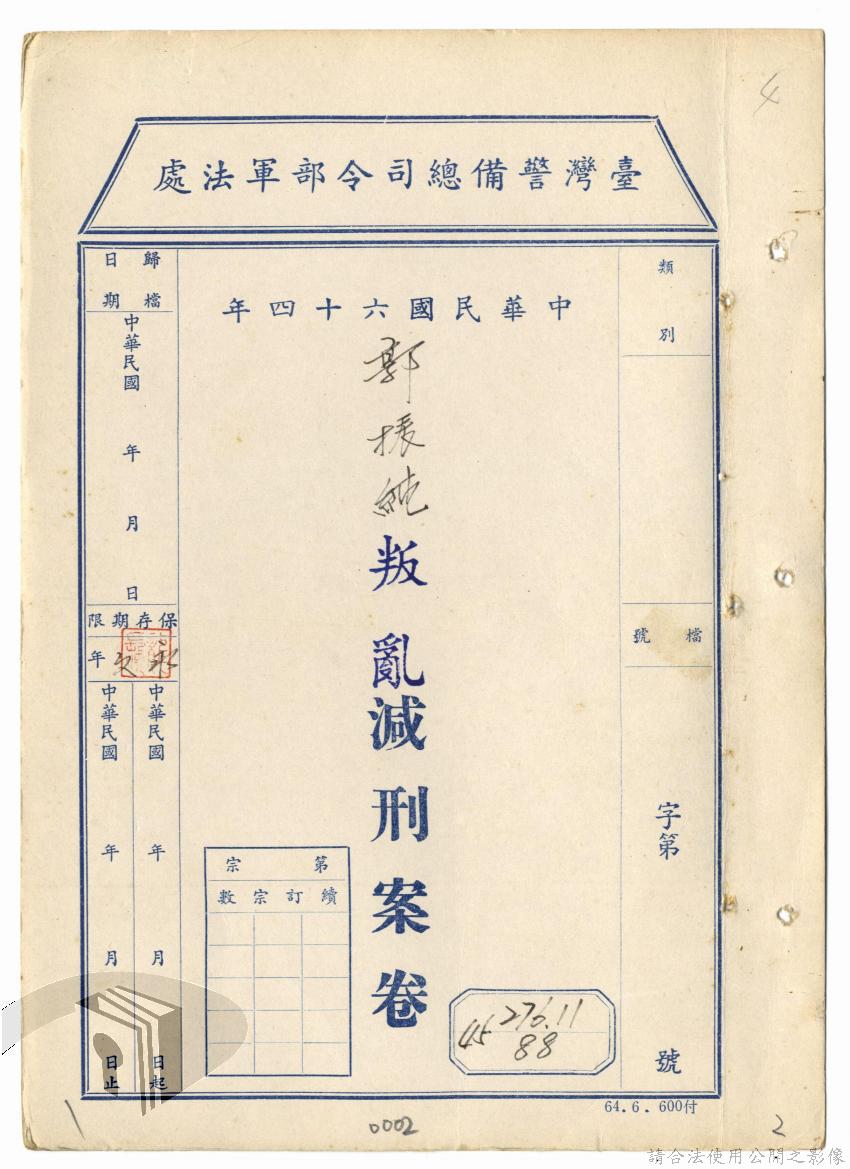 4
臺灣警備總司令部軍法處
類別
檔號
字第 號
中華民國六十四年
郭振純叛亂減刑案卷
第 宗
續訂宗數
276.11
45 88
歸檔日期
中華民國 年 月 日
保存期限
永久年
中華民國 年 月 日起
中華民國 年 月 日止
64.6.600付
1
0002
2
請合法使用公開之影像